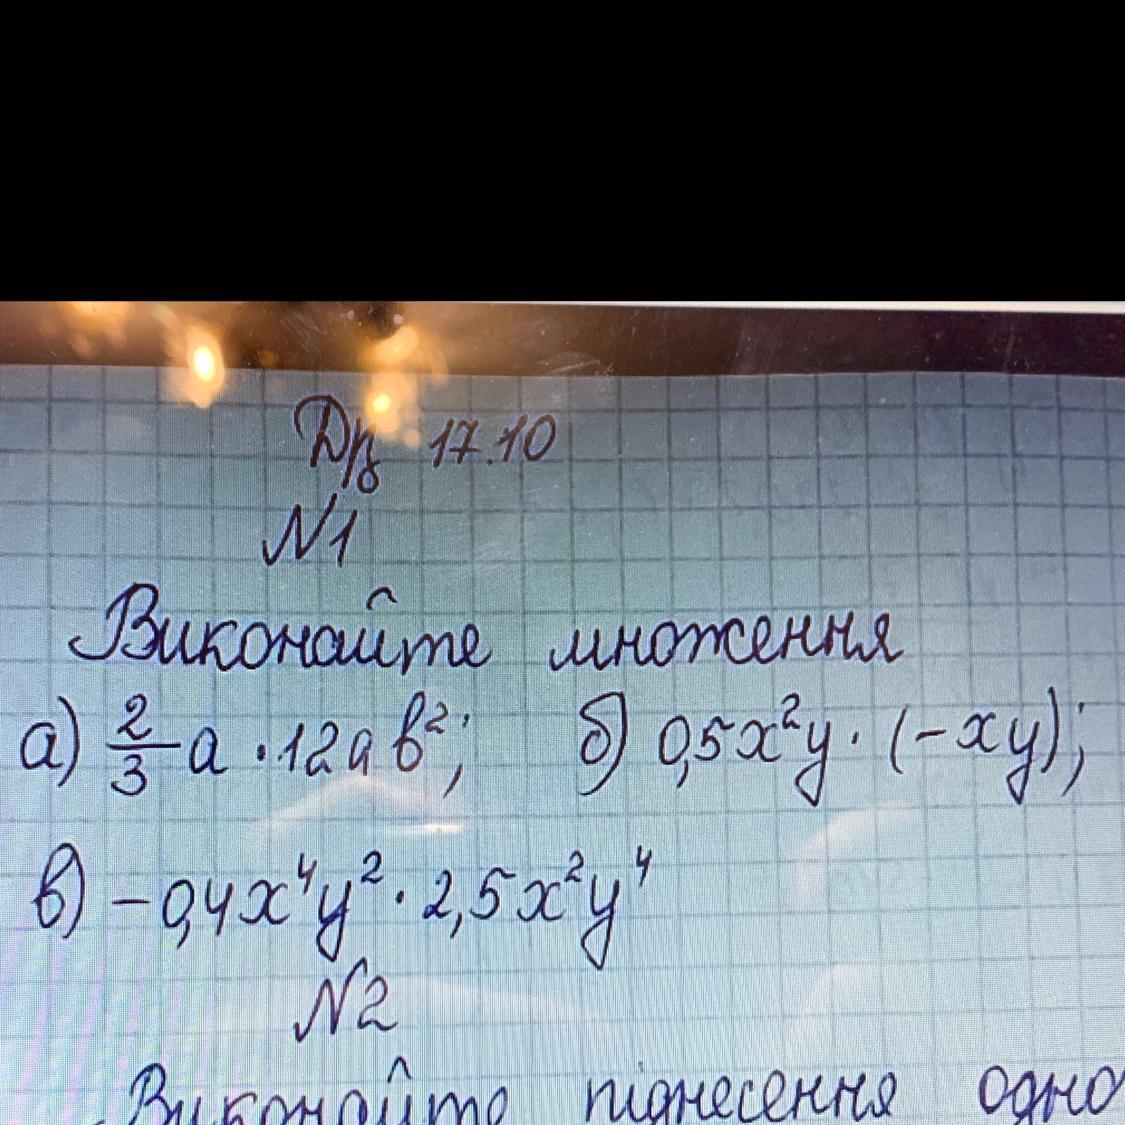 Дз 17.10
N1
Виконайте множення
а) 2/3 a · 12ab²; б) 0,5x²y · (-xy);
в) -0,4x⁴y² · 2,5x²y⁴
N2
Виконайте піднесення одно